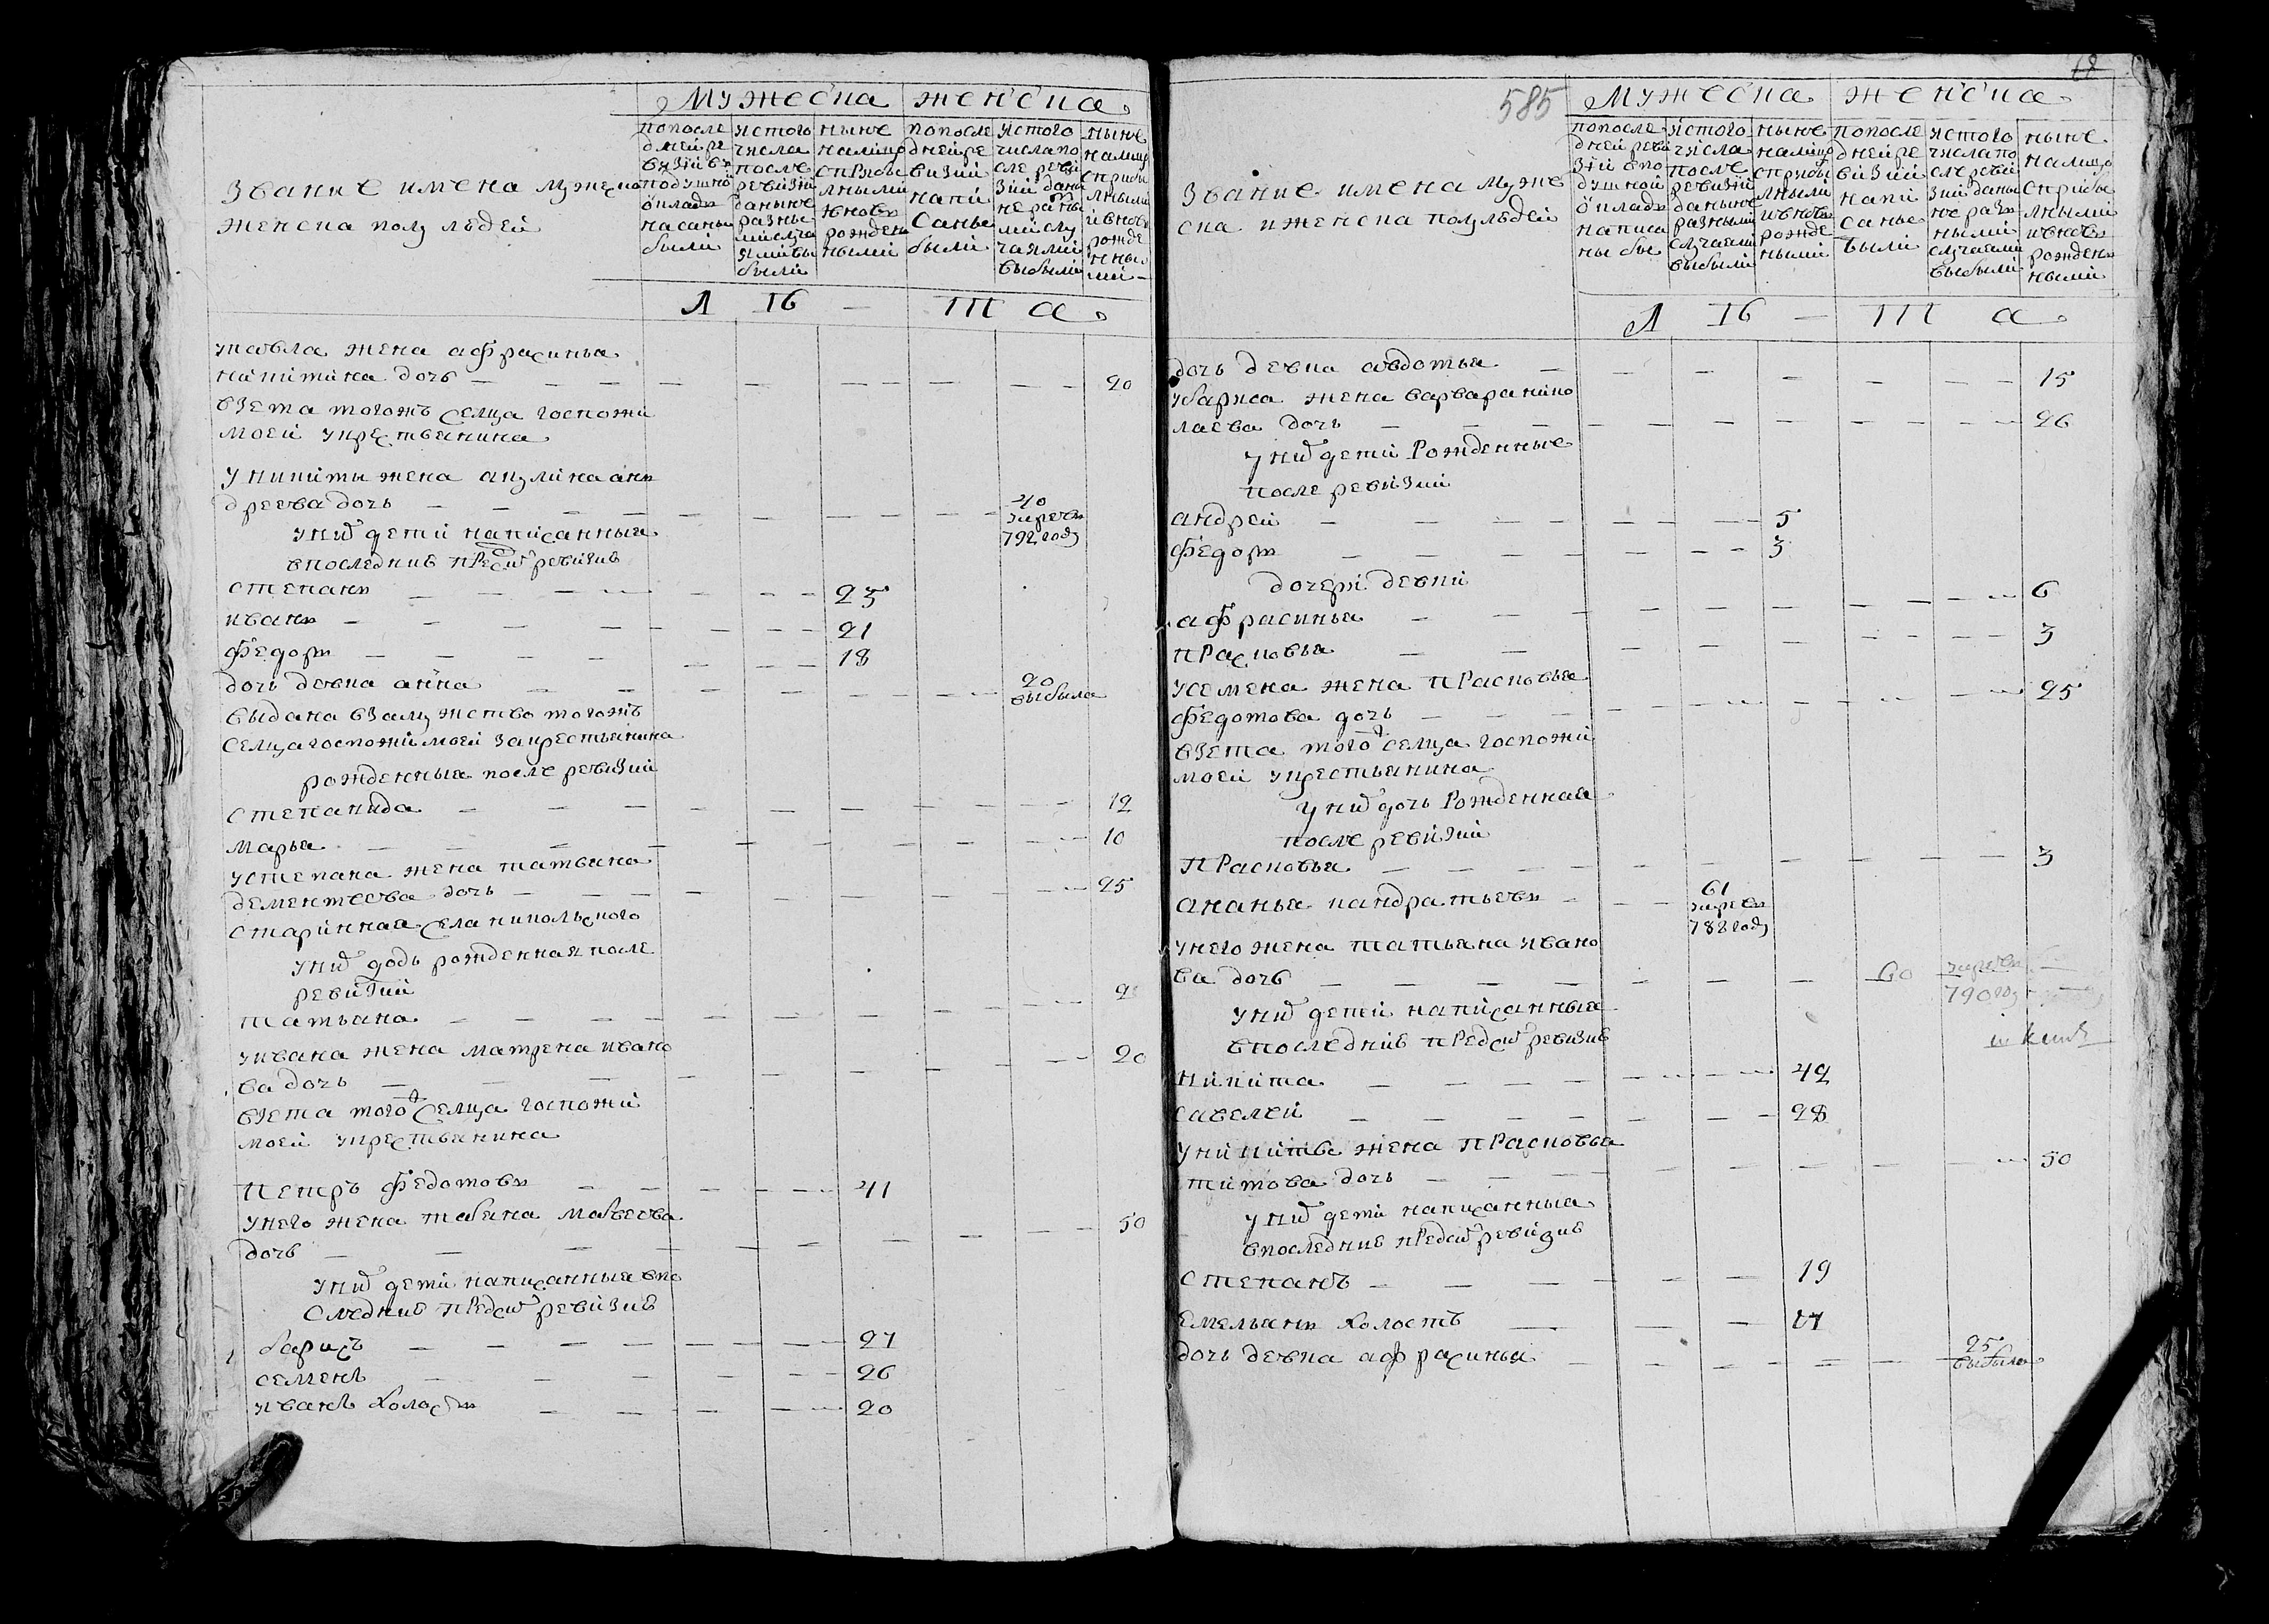 мужеска женска
званiе имена мужеска
женска полу людей
попосле дней ревизiи въ подушной окладъ написаны были
изтого числа после ревизiи даныне разными случаями выбыли
ныне налицо сприбылыми и вновь рожденными
попосле дней ревизiи написаны были
изтого числа после ревизiи даныне разными случаями выбыли
ныне налицо сприбылыми и вновь рожденными
Л Iб — III а
жена афрасинья
никитина дочь — 20
взета тогожъ селца госпожи
моей укрестьянина
у никиты жена акулина анъ
дреева дочь — 40
умре въ
792 году
у них дети написанныя
впоследние пред сим ревизие
степанъ — 25
иванъ — 21
федоръ — 18
дочь девка анна — 20
выбыла
выдана взамужство тогожъ
селца госпожи моей за крестьянина
рожденныя после ревизии
степанида — 12
марья — 10
у степана жена татьяна
дементьева дочь — 25
старинная села никольского
у них дочь рожденная после
ревизии
татьяна — 2
у ивана жена матрена ивано
ва дочь — 20
взета того ж селца госпожи
моей укрестьянина
петръ федотовъ — 41
у него жена
дочь — 50
у них дети написанныя впо
следние пред сим ревизие
барисъ — 27
семенъ — 26
иванъ холостъ — 20
68
585
мужеска женска
званiе имена муже
ска и женска полу людей
попосле дней ревизiи в подушной окладъ написаны бы
изтого числа после ревизiи даныне разными случаями выбыли
ныне налицо сприбылыми и вновь рожденными
попосле дней ревизiи написаны были
изтого числа после ревизiи даныне разными случаями выбыли
ныне налицо сприбылыми и вновь рожденными
Л Iб — III а
дочь девка авдотья — 15
у бариса жена варвара нико
лаева дочь — 26
у них дети рожденные
после ревизии
андрей — 5
федоръ — 3
дочери девки
афрасинья — 6
прасковья — 3
у семена жена прасковья
федотова дочь — 25
взета того ж селца госпожи
моей укрестьянина
у них дочь рожденная
после ревизии
прасковья — 3
ананья кандратьевъ — 61
умре въ
788 году
у него жена татьяна ивано
ва дочь — 60 умре въ
790 году
у них дети написанныя
впоследние пред сим ревизие
никита — 42
савелей — 28
у никиты жена прасковья
титова дочь — 50
у них дети написанныя
впоследние пред сим ревизие
степанъ — 19
емельянъ холостъ — 17
дочь девка афрасинья — 25
выбыла